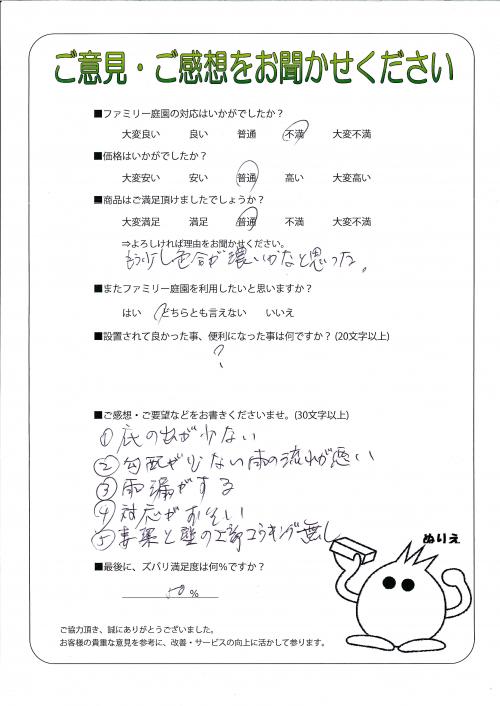 ご意見・ご感想をお聞かせください
■ファミリー庭園の対応はいかがでしたか？
大変良い 良い 普通 不満 大変不満
■価格はいかがでしたか？
大変安い 安い 普通 高い 大変高い
■商品はご満足頂けましたでしょうか？
大変満足 満足 普通 不満 大変不満
⇒よろしければ理由をお聞かせください。
もう少し色合が濃いかなと思った。
■またファミリー庭園を利用したいと思いますか？
はい どちらとも言えない いいえ
■設置されて良かった事、便利になった事は何ですか？(20文字以上)
？
■ご感想・ご要望などをお書きくださいませ。(30文字以上)
① 庇の出が少ない
② 勾配が少ない雨の流れが悪い
③ 雨漏がする
④ 対応がおそい
⑤ と壁の上部コーキング無し
ぬりえ
■最後に、ズバリ満足度は何%ですか？
50 %
ご協力頂き、誠にありがとうございました。
お客様の貴重な意見を参考に、改善・サービスの向上に活かして参ります。